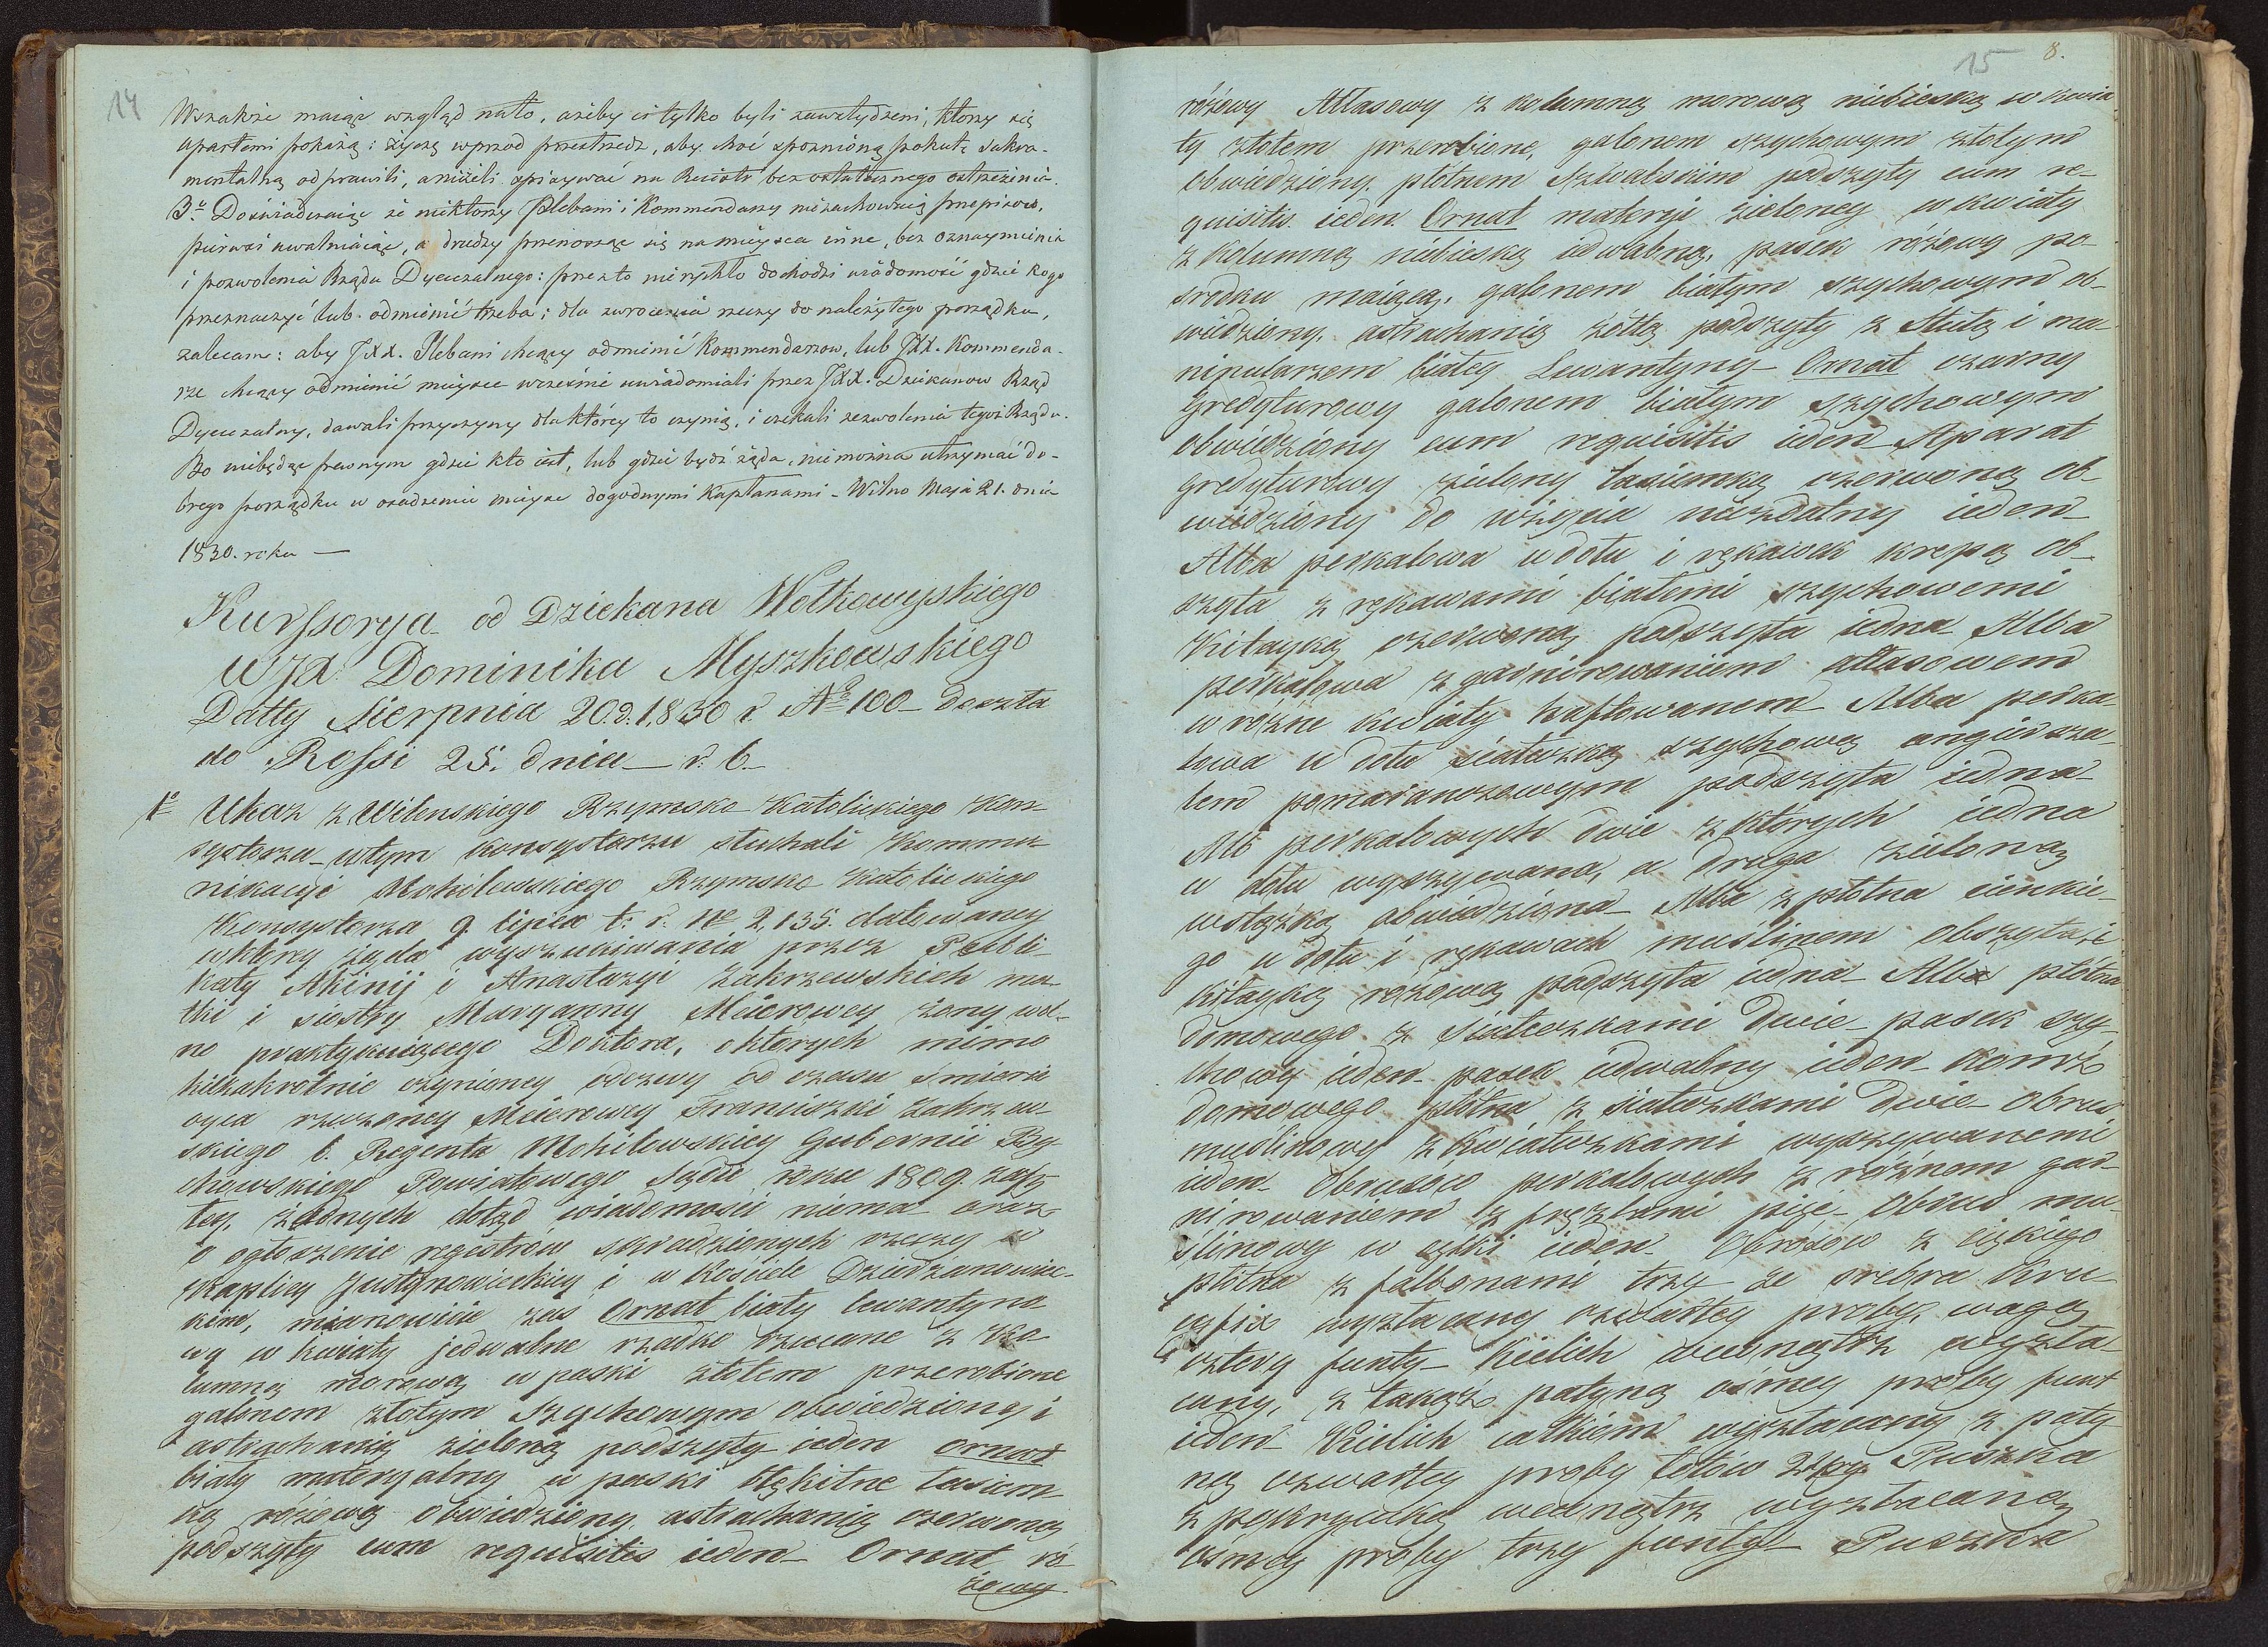 14
Wszakże maiąc wzgląd na to, ażeby ci tylko byli zawstydzeni, ktorzy się
upartemi pokażą: życzę wprzod przestrzedz, aby choć spoznioną pokutę sakra-
mentalną odprawili, aniżeli opisywać na Rejestr bez ostatecznego ostrzeżenia.
3o Doświadczaiąc że niektorzy Plebani i Kommendarze niezachowuią przepisow,
pierwsi uwalniaiąc, a drudzy przenosząc się na mieysca inne, bez oznaymienia
i pozwolenia Rządu Dyecezalnego: przez to nierychło dochodzi wiadomość gdzie kogo
przeznaczyć lub odmienić trzeba; dla zwrocenia rzeczy do należytego porządku,
zalecam: aby JXX. Plebani chcący odmienić Kommendarzow, lub JXX. Kommenda-
rze chcący odmienić mieysce wcześnie uwiadomiali przez JXX. Dziekanow Rząd
Dyecezalny, dawali przyczyny dla którey to czynią, i czekali zezwolenia tegoż Rządu.
Bo niebędąc pewnym gdzie kto iest, lub gdzie bydź żąda, nie można utrzymać do-
brego porządku w osadzeniu mieysc dogodnymi Kapłanami - Wilno Maja 21. dnia
1830. roku —
Kurssorya od Dziekana Wołkowyskiego
WJX. Dominika Myszkowskiego
Datty Sierpnia 20. d. 1830 r. No 100 - Doszła
do Rossi 25. dnia - r. b.
1o Ukaz z Wilenskiego Rzymsko Katolickiego Kon-
systorza - w tym Konsystorzu słuchali Kommu-
nikacyi Mohilewskiego Rzymsko Katolickiego
Konsystorza 9. lipca t. r. No 2,135. datowaney
w ktorey żąda wyszukiwania przez Publi-
katy Akinij i Anastazyi Zakrzewskich ma-
tki i siostry Maryanny Meierowey żony wol-
no praktykuiącego Doktora, o ktorych mimo
kilkakrotnie czynioney odezwy od czasu śmierci
oyca rzeczoney Meierowey Franciszki Zakrzew-
skiego b. Regenta Mohilewskiey Gubernii By-
chowskiego Powiatowego Sądu roku 1809 zaszł
tey, żadnych dotąd wiadomości niema oraz
o ogłoszenie regestrow skradzionych rzeczy w
Kaplicy Justynowieckiey i w Kościele Dziedzanowiec-
kim, mianowicie zas Ornat biały lewantyno
wy w kwiaty jedwabne rzadko rzucane z Ko
lumną morową w paski złotem przerobione
galonem złotym szychowym obwiedziony i
astrachanią zieloną podszyty ieden Ornat
biały materyalny w paski błękitne tasiem-
ką różową obwiedziony astrachanią czerwoną
podszyty cum requisitis ieden - Ornat ró
żowy
15 8.
różowy Attlasowy z kolumną morową niebieską w kwia
ty złotem przerobione, galonem szychowym złotym
obwiedziony, płótnem Szwabskim podszyty cum re-
quisitis ieden. Ornat materyi zieloney w kwiaty
z Kolumną niebieską iedwabną, pasek różowy po-
srodku maiącą, galonem białym szychowym ob-
wiedziony, astrachanią żółtą podszyty z Stułą i ma-
nipularzem białey Lewantyny - Ornat czarny
Gredyturowy galonem białym szychowym
obwiedziony cum requisitis ieden Aparat
gredyturowy zielony tasiemką czerwoną ob-
wiedziony do użycia niezdatny ieden -
Alba perkalowa u dołu i rękawek krepą ob-
szyta z rękawami białemi szychowemi
Kitayką czerwoną podszyta iedna - Alba
perkalowa z garnirowaniem atłasowem
w rożne kwiaty haftowanem Alba perka-
lowa u dołu siateczką szychową angiersza-
tem pomarańczowym podszyta iedna
Alb perkalowych dwie z których iedna
u dołu wyszywana, a druga zieloną
wstążką obwiedziona - Alba z płotna cienkie-
go u dołu i rękawach muślinem obszyta i
kitayką rożową podszyta iedna - Alba płótna
domowego z Siateczkami dwie - pasek szy-
chowy ieden - pasek iedwabny ieden Komż
domowego płótna z siateczkami dwie - Obrus
muślinowy z kwiateczkami wyszywanemi
ieden - Obrusów perkalowych z różnem gar-
nirowaniem z fręzlami pięć - Obrus mu-
ślinowy w cętki ieden - Obrusow z ciękiego
płótna z falbonami trzy - ze srebra Kru-
cyfix wyzłacany czwartey proby, wagą
cztery funty - Kielich wewnątrz wyzła-
cany, z takąż patyną osmey proby funt
ieden - Kielich całkiem wyzłacany z paty-
ną czwartey proby łotów Puszka
z pokrywką wewnątrz wyzłacaną
osmey proby trzy funty - Puszka